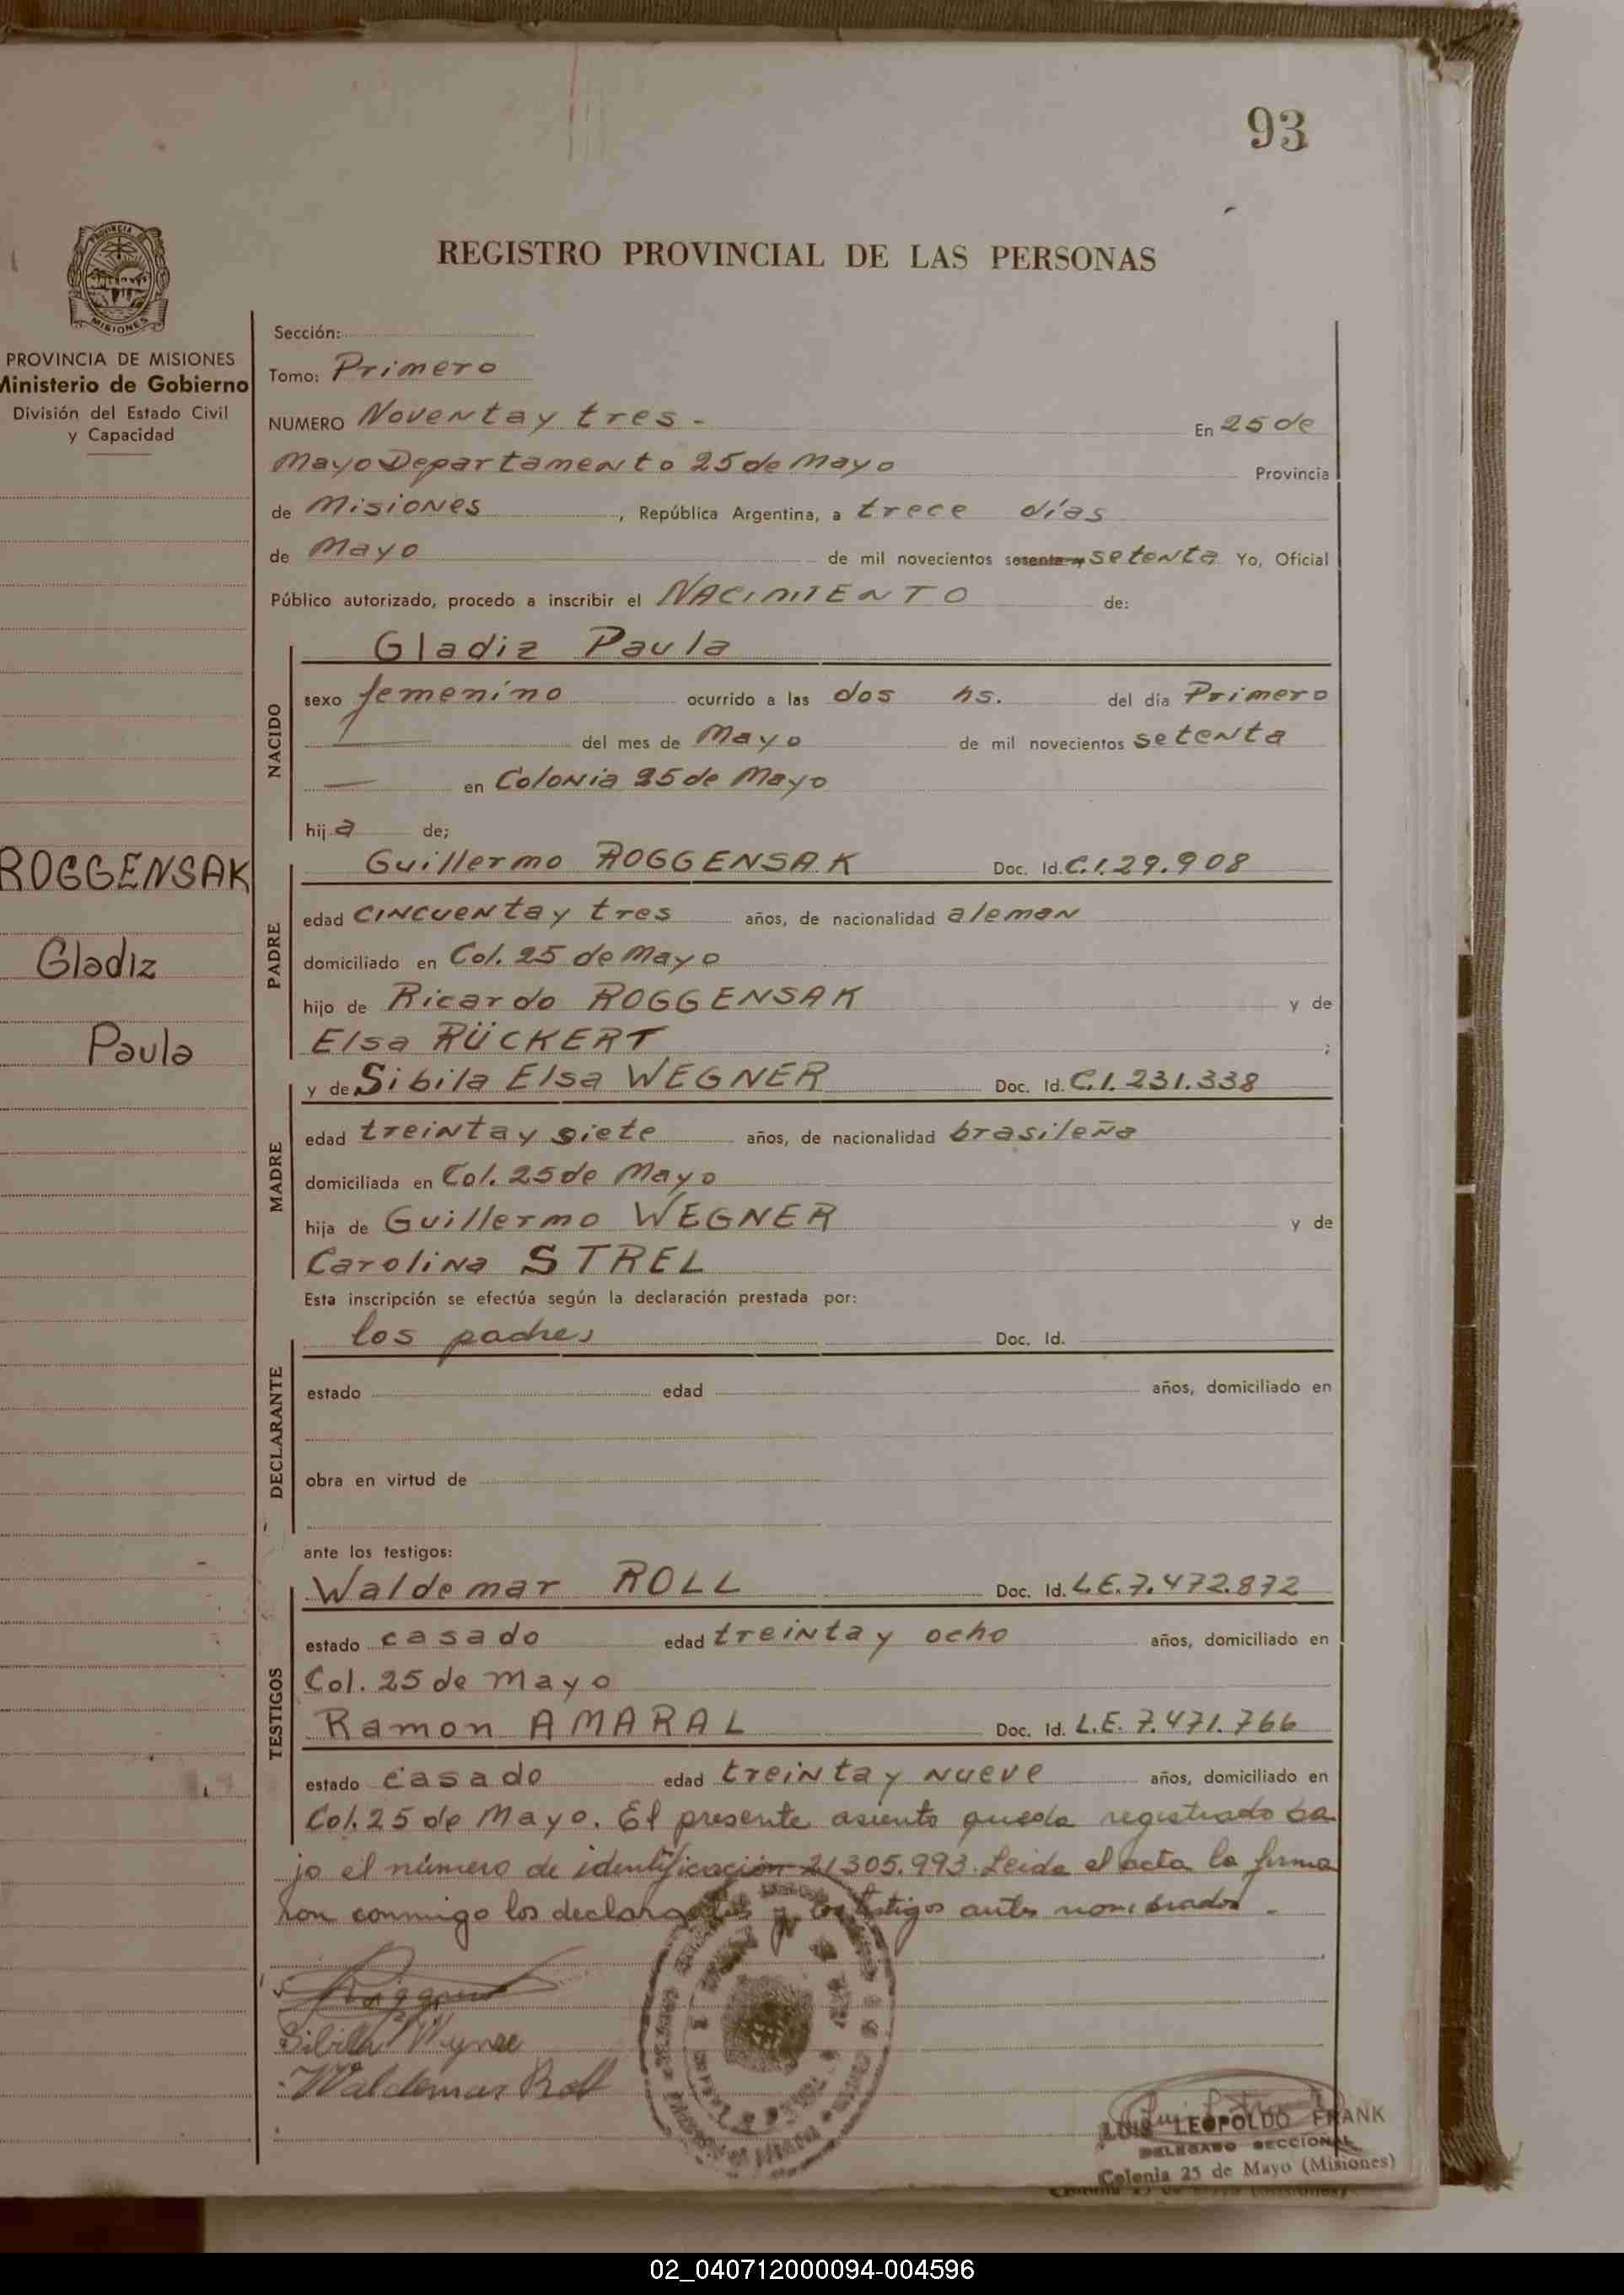 93
REGISTRO PROVINCIAL DE LAS PERSONAS
PROVINCIA DE
MISIONES
PROVINCIA DE MISIONES
Ministerio de Gobierno
División del Estado Civil
y Capacidad
ROGGENSAK
Gladiz
Paula
Sección:
Tomo: Primero
NUMERO Noventa y tres - En 25 de
Mayo Departamento 25 de Mayo Provincia
de Misiones, República Argentina, a trece días
de Mayo de mil novecientos sesenta y setenta Yo, Oficial
Público autorizado, procedo a inscribir el NACIMIENTO de:
NACIDO
Gladiz Paula
sexo femenino ocurrido a las dos hs. del día Primero
del mes de Mayo de mil novecientos setenta
en Colonia 25 de Mayo
hija de;
PADRE
Guillermo ROGGENSAK Doc. Id. C.I. 29.908
edad cincuenta y tres años, de nacionalidad aleman
domiciliado en Col. 25 de Mayo
hijo de Ricardo ROGGENSAK y de
Elsa RÜCKERT ;
MADRE
y de Sibila Elsa WEGNER Doc. Id. C.I. 231.338
edad treinta y siete años, de nacionalidad brasileña
domiciliada en Col. 25 de Mayo
hija de Guillermo WEGNER y de
Carolina STREL
Esta inscripción se efectúa según la declaración prestada por:
DECLARANTE
los padres Doc. Id.
estado edad años, domiciliado en
obra en virtud de
ante los testigos:
TESTIGOS
Waldemar ROLL Doc. Id. L.E. 7.472.872
estado casado edad treinta y ocho años, domiciliado en
Col. 25 de Mayo
Ramon AMARAL Doc. Id. L.E. 7.471.766
estado casado edad treinta y nueve años, domiciliado en
Col. 25 de Mayo. El presente asiento queda registrado ba
jo el número de identificación 21305.993. Leida el acta la firma
ron conmigo los declarantes y los testigos antes nombrados.
Sibila
Waldemar Roll
LUIS LEOPOLDO FRANK
DELEGADO SECCIONAL
Colonia 25 de Mayo (Misiones)
02_040712000094-004596